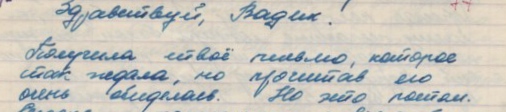 Здравствуй, Вадик.
Получила твоё письмо, которое
так ждала, но прочитав его
очень обиделась. Но это потом.